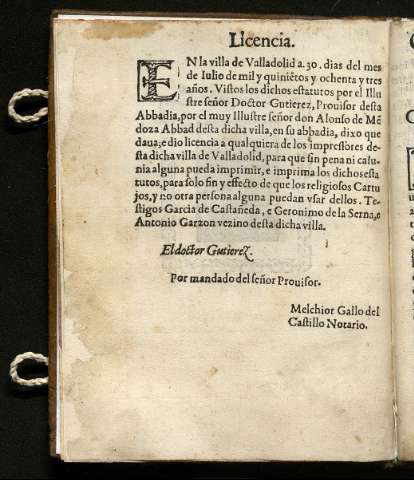 Licencia.
EN la villa de Valladolid a. 30. dias del mes
de Iulio de mil y quiniẽtos y ochenta y tres
años. Vistos los dichos estatutos por el Illu
stre señor Doctor Gutierez, Prouisor desta
Abbadia, por el muy Illustre señor don Alonso de Mẽ
doza Abbad desta dicha villa, en su abbadia, dixo que
daua, e dio licencia a qualquiera de los impressores de-
sta dicha villa de Valladolid, para que sin pena ni calu-
nia alguna pueda imprimir, e imprima los dichos esta
tutos, para solo fin y effecto de que los religiosos Cartu
jos, y no otra persona alguna puedan vsar dellos. Te-
stigos Garcia de Castañeda, e Geronimo de la Serna, e
Antonio Garzon vezino desta dicha villa.
El doctor Gutierez.
Por mandado del señor Prouisor.
Melchior Gallo del
Castillo Notario.